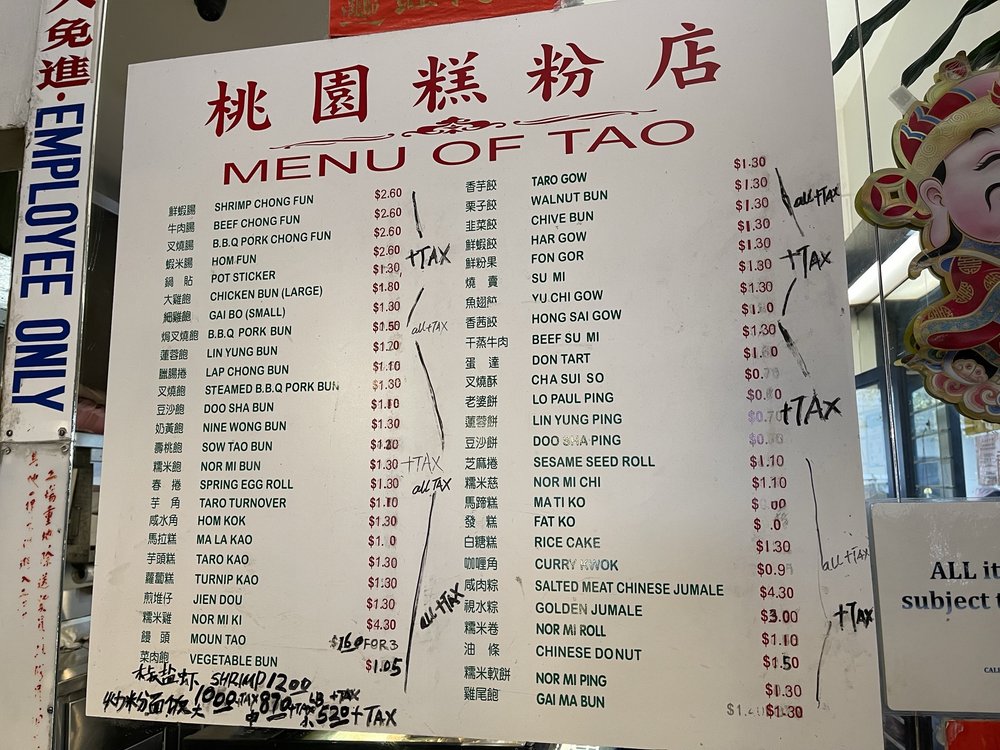 人免進·EMPLOYEE ONLY
桃園糕粉店
MENU OF TAO
鮮蝦腸 SHRIMP CHONG FUN $2.60
牛肉腸 BEEF CHONG FUN $2.60
叉燒腸 B.B.Q PORK CHONG FUN $2.60
蝦米腸 HOM FUN $2.60
+TAX
鍋貼 POT STICKER $1.30
大雞飽 CHICKEN BUN (LARGE) $1.80
細雞飽 GAI BO (SMALL) $1.30
焗叉燒飽 B.B.Q PORK BUN $1.50
all+TAX
蓮蓉飽 LIN YUNG BUN $1.20
臘腸捲 LAP CHONG BUN $1.10
叉燒飽 STEAMED B.B.Q PORK BUN $1.30
豆沙飽 DOO SHA BUN $1.10
奶黃飽 NINE WONG BUN $1.30
壽桃飽 SOW TAO BUN
糯米飽 NOR MI BUN $1.30
+TAX
春捲 SPRING EGG ROLL $1.30
all TAX
芋角 TARO TURNOVER
咸水角 HOM KOK $1.30
馬拉糕 MA LA KAO
芋頭糕 TARO KAO $1.30
蘿蔔糕 TURNIP KAO $1.30
煎堆仔 JIEN DOU $1.30
all+TAX
糯米雞 NOR MI KI $4.30
饅頭 MOUN TAO $1.60 FOR 3
菜肉飽 VEGETABLE BUN $1.05
椒盐虾 SHRIMP 1200
炒粉面饭 大 1000+TAX 中 870+TAX 小 530+TAX
香芋餃 TARO GOW $1.30
栗子餃 WALNUT BUN $1.30
韭菜餃 CHIVE BUN $1.30
all+TAX
鮮蝦餃 HAR GOW $1.30
鮮粉果 FON GOR $1.30
燒賣 SU MI $1.30
+TAX
魚翅餃 YU CHI GOW $1.30
香茜餃 HONG SAI GOW
干蒸牛肉 BEEF SU MI $1.30
蛋達 DON TART
叉燒酥 CHA SUI SO
老婆餅 LO PAUL PING
+TAX
蓮蓉餅 LIN YUNG PING
豆沙餅 DOO SHA PING
芝麻捲 SESAME SEED ROLL $1.10
糯米慈 NOR MI CHI $1.10
馬蹄糕 MA TI KO
發糕 FAT KO
白糖糕 RICE CAKE $1.30
all+TAX
咖喱角 CURRY KWOK
咸肉粽 SALTED MEAT CHINESE JUMALE $4.30
視水粽 GOLDEN JUMALE $3.00
+TAX
糯米卷 NOR MI ROLL $1.10
油條 CHINESE DONUT $1.50
糯米軟餅 NOR MI PING $1.30
雞尾飽 GAI MA BUN $1.30
ALL it
subject t